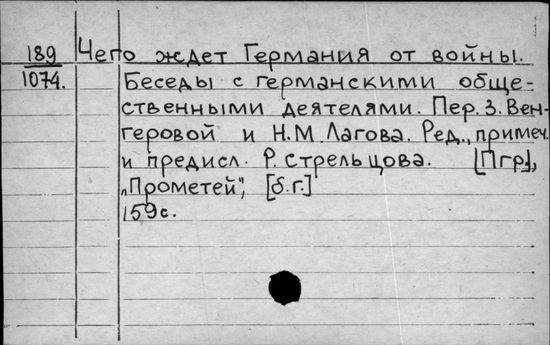 189 Чего ждет Германия от войны.
1074. Беседы с германскими обще-
ственными деятелями. Пер. З. Вен-
геровой и Н.М. Лагова. Ред., примеч.
и предисл. Р. Стрельцова. [Пгр.],
„Прометей", [б.г.]
159с.